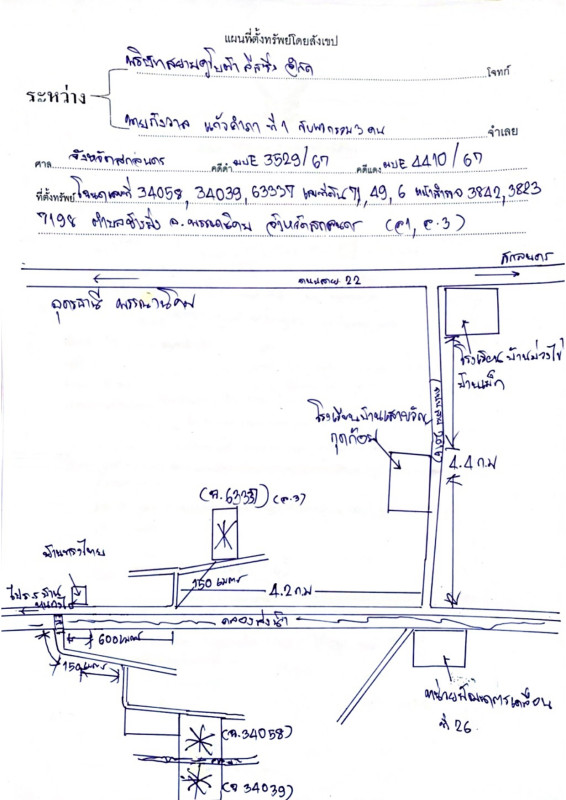 แผนที่ตั้งทรัพย์โดยสังเขป
บริษัทสยามคูโบต้า ลีสซิ่ง จำกัด โจทก์
ระหว่าง
แก้วคำภา ที่ 1 กับพวกรวม 3 คน จำเลย
ศาล จังหวัดสกลนคร คดีดำ ผบE 3529/67 คดีแดง ผบE 4410/67
ที่ตั้งทรัพย์ โฉนดเลขที่ 34058, 34039, 63337 เลขที่ดิน 71, 49, 6 หน้าสำรวจ 3842, 3823
7198 ตำบลช้างมิ่ง อ.พรรณานิคม จังหวัดสกลนคร (จ.1, จ.3)
สกลนคร
ถนนสาย 22
อุดรธานี พรรณานิคม
โรงเรียนบ้านม่วงไข่
บ้านเม็ก
โรงเรียนบ้านเสาขวัญ
กุดก้อม
4.4 ก.ม
(ฉ.63337) (จ.3)
150 เมตร
4.2 ก.ม
คลองส่งน้ำ
600 เมตร
150 เมตร
หน่วยพัฒนาการเคลื่อน
ที่ 26
(ฉ.34058)
(ฉ.34039)